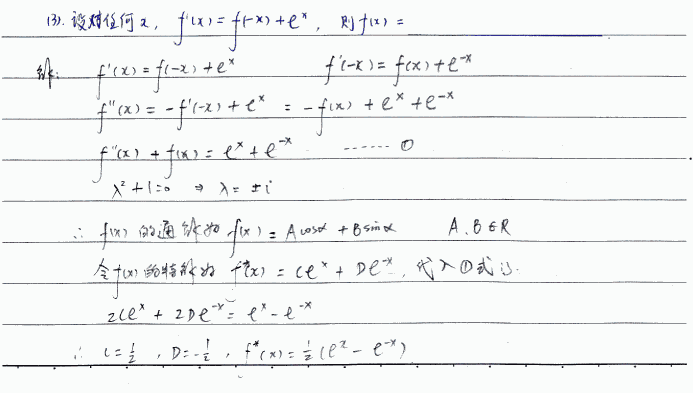 (3). 设对任何x, f'(x) = f(-x) + e^x, 则f(x) =
解: f'(x) = f(-x) + e^x f'(-x) = f(x) + e^{-x}
f''(x) = -f'(-x) + e^x = -f(x) + e^x + e^{-x}
f''(x) + f(x) = e^x + e^{-x} ······ ①
λ² + 1 = 0 ⇒ λ = ±i
∴ f(x) 的通解为 f(x) = A cosx + B sinx A.B∈R
令f(x)的特解为 f*(x) = Ce^x + De^{-x}, 代入①式得.
2Ce^x + 2De^{-x} = e^x - e^{-x}
∴ C = 1/2, D = -1/2, f*(x) = 1/2 (e^x - e^{-x})